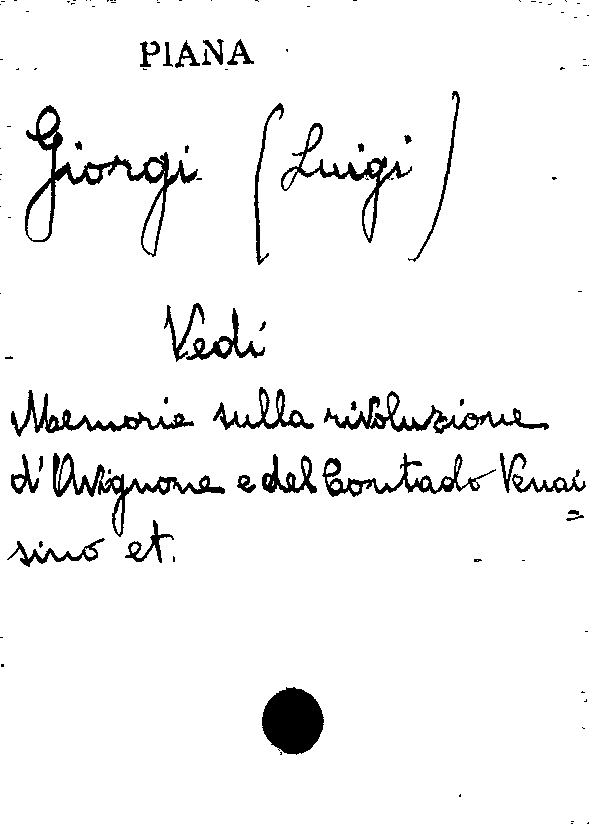 PIANA
Giorgi (Luigi)
Vedi
Memorie sulla rivoluzione
d'Avignone e del Contado Venai
=
sino et.